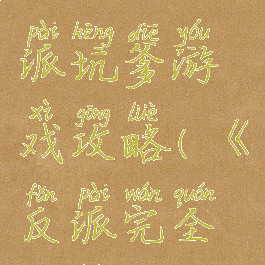 pài kēng diē yóu
派坑爹游
xì gōng lüè
戏攻略(《
fǎn pài wán quán
反派完全